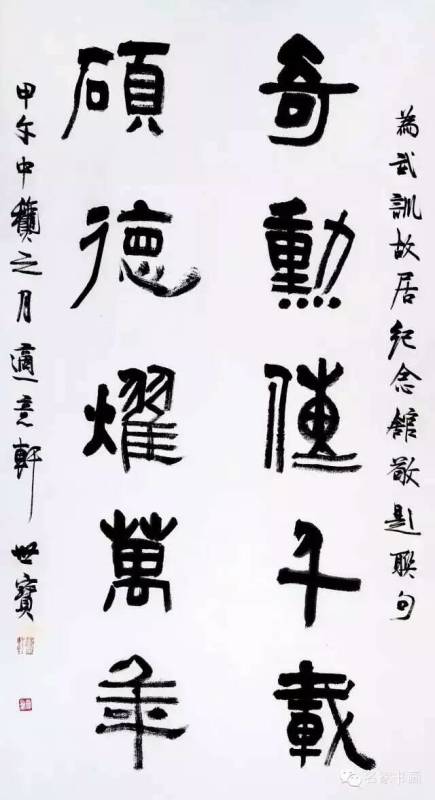 為武訓故居紀念館敬題聯句
奇勳傳千載
碩德耀萬年
甲午中龝之月適意軒世寶
名家书画